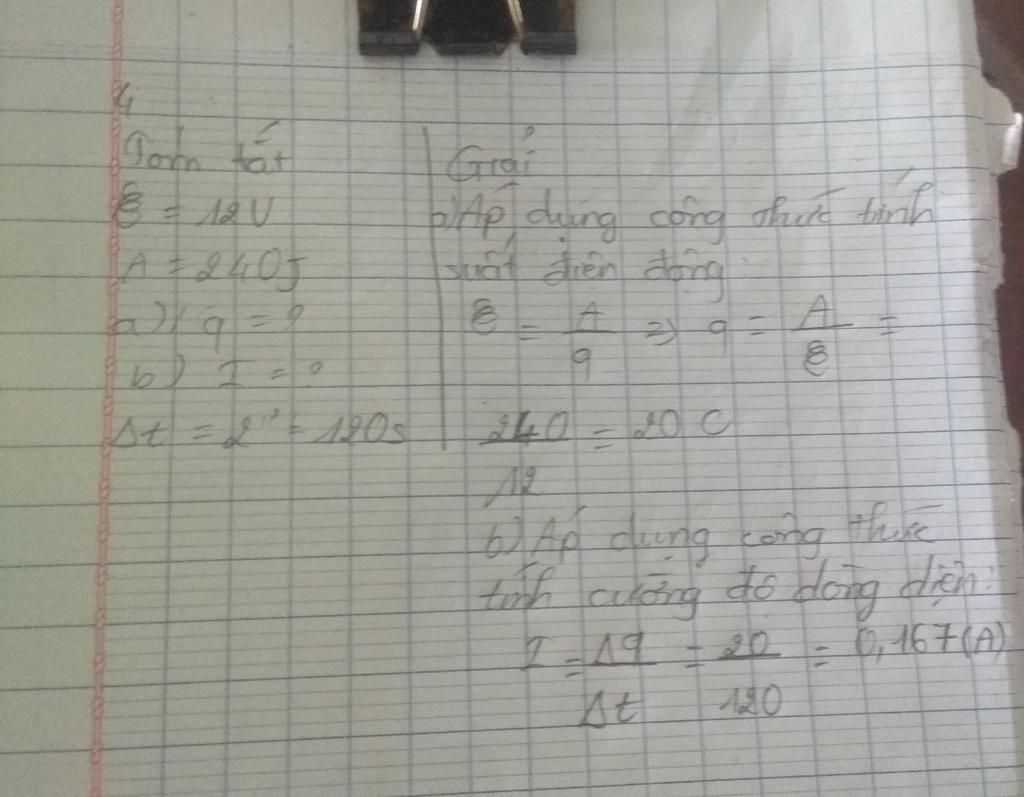 4
Tóm tắt
ℰ = 12V
A = 240J
a) q = ?
b) I = ?
Δt = 2' = 120s
Giải
a) Áp dụng công thức tính
suất điện động:
ℰ = A/q => q = A/ℰ =
240/12 = 20 C
b) Áp dụng công thức
tính cường độ dòng điện:
I = Δq/Δt = 20/120 = 0,167(A)